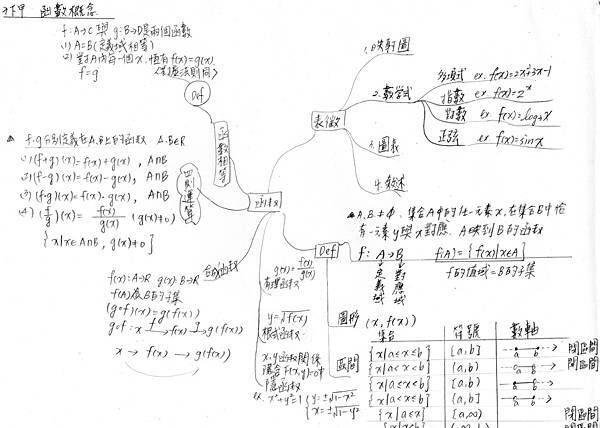 函數概念
f:A→C 與 g:B→D是兩個函數
(1) A=B(定義域相等)
(2) 對A內每一個x,恆有f(x)=g(x)
f=g
Def
函數相等
f,g分別定義在A,B上的函數 A,B∈R
(1)(f+g)(x)=f(x)+g(x), A∩B
(2)(f-g)(x)=f(x)-g(x), A∩B
(3)(f·g)(x)=f(x)·g(x), A∩B
(4)(f/g)(x)=f(x)/g(x) (g(x)≠0)
{x|x∈A∩B, g(x)≠0}
四則運算
合成函數
f(x):A→R g(x):B→R
f(A)為B的子集
(g∘f)(x)=g(f(x))
g∘f: x →f f(x) →g g(f(x))
x → f(x) → g(f(x))
表徵
1.映射圖
2.數學式
多項式 ex. f(x)=2x²+3x-1
指數 ex f(x)=2ˣ
對數 ex f(x)=log₂x
正弦 ex f(x)=sinx
3.圖表
4.敘述
Def
A,B≠φ, 集合A中的任一元素x,在集合B中恰
有一元素y與x對應, A映到B的函數
f: A→B f(A)={f(x)|x∈A}
定義域
對應域
f的值域=B的子集
圖形 (x, f(x))
g(x)=f(x)/g(x)
有理函數
y=√f(x)
根式函數
x,y函數關係
隱含f(x,y)=0中
隱函數
ex. x²+y²=1 {y=±√1-x²
{x=±√1-y²
區間
集合 符號 數軸
{x|a≤x≤b} [a,b] a b 閉區間
{x|a<x<b} (a,b) a b 開區間
{x|a<x≤b} (a,b] a b
{x|a≤x<b} [a,b) a b
{x|a≤x} [a,∞) 閉區間